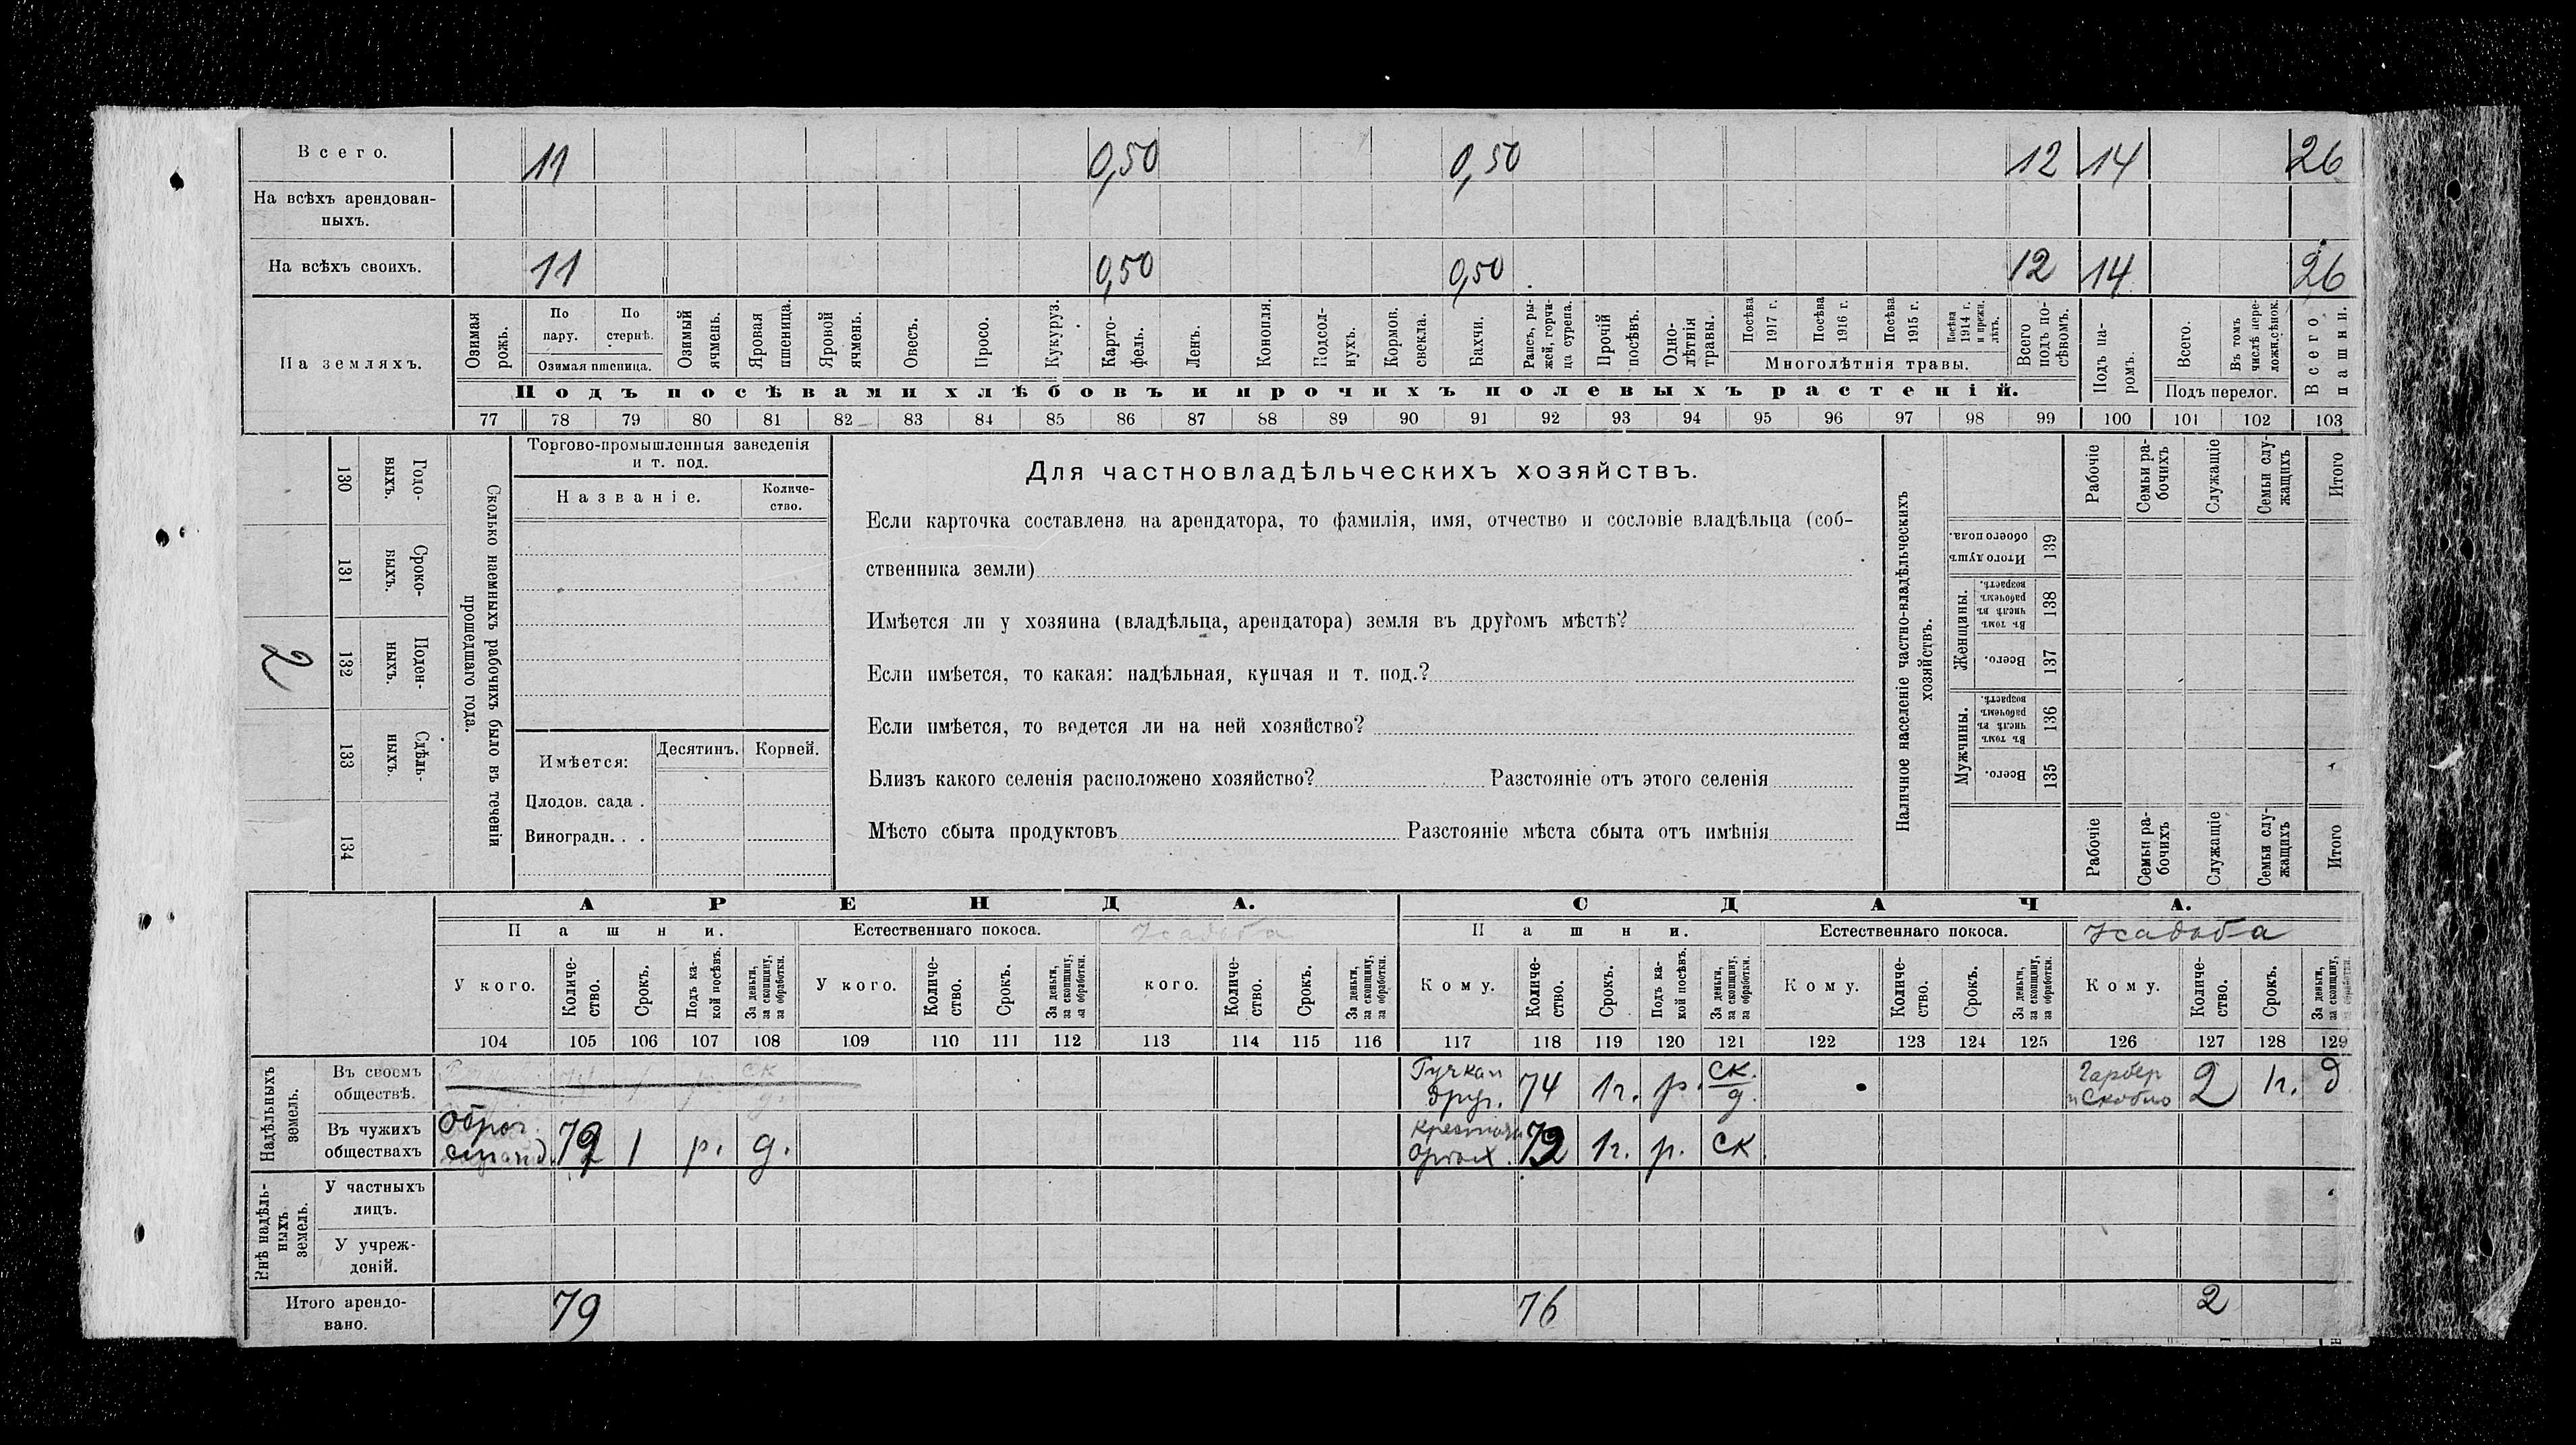 Всего. 11 0,50 0,50 12 14 26
На всѣхъ арендован-
ныхъ.
На всѣхъ своихъ. 11 0,50 0,50 12 14 26
На земляхъ.
Озимая рожь.
По пару.
По стернѣ.
Озимая пшеница.
Озимый ячмень.
Яровая пшеница.
Яровой ячмень.
Овесъ.
Просо.
Кукуруз.
Карто-
фель.
Ленъ.
Конопля.
Подсол-
нухъ.
Кормов. свекла.
Бахчи.
Рапсъ, ры-
жей, горчи-
ца сурепа.
Прочій посѣвъ.
Одно-
лѣтнія травы.
Посѣва 1917 г.
Посѣва 1916 г.
Посѣва 1915 г.
Посѣва 1914 г. и прежн. лѣтъ.
Многолѣтнія травы.
Всего подъ по-
сѣвомъ.
Подъ посѣвами хлѣбовъ и прочихъ полевыхъ растеній.
Подъ па-
ромъ.
Всего.
Въ томъ числѣ пере-
ложн.сѣнок.
Подъ перелог.
Всего пашни.
77 78 79 80 81 82 83 84 85 86 87 88 89 90 91 92 93 94 95 96 97 98 99 100 101 102 103
Сколько наемныхъ рабочихъ было въ теченіи
прошедшаго года.
Годо-
выхъ.
130
Сроко-
выхъ.
131
Поден-
ныхъ.
132
2
Сдѣль-
ныхъ.
133
134
Торгово-промышленныя заведенія
и т. под.
Названіе.
Количе-
ство.
Имѣется:
Десятинъ.
Корней.
Плодов. сада .
Виноградн. . .
Для частновладѣльческихъ хозяйствъ.
Если карточка составлена на арендатора, то фамилія, имя, отчество и сословіе владѣльца (соб-
ственника земли)
Имѣется ли у хозяина (владѣльца, арендатора) земля въ другомъ мѣстѣ?
Если имѣется, то какая: надѣльная, купчая и т. под.?
Если имѣется, то ведется ли на ней хозяйство?
Близъ какого селенія расположено хозяйство? Разстояніе отъ этого селенія
Мѣсто сбыта продуктовъ Разстояніе мѣста сбыта отъ имѣнія
Наличное населеніе частно-владѣльческихъ
хозяйствъ.
Рабочіе
Семьи ра-
бочихъ
Служащіе
Семьи слу-
жащихъ
Итого
Итого душъ обоего пола.
139
Женщины.
Въ томъ числѣ въ рабочемъ возрастѣ.
138
Всего.
137
Мужчины.
Въ томъ числѣ въ рабочемъ возрастѣ.
136
Всего.
135
Рабочіе
Семьи ра-
бочихъ
Служащіе
Семьи слу-
жащихъ
Итого
АРЕНДА. СДАЧА.
Пашни. Естественнаго покоса. Усадьба Пашни. Естественнаго покоса. Усадьба
У кого.
Количе-
ство.
Срокъ.
Подъ ка-
кой посѣвъ.
За деньги,
за скопщину,
за обработки.
У кого.
Количе-
ство.
Срокъ.
За деньги,
за скопщину,
за обработки.
кого.
Количе-
ство.
Срокъ.
За деньги,
за скопщину,
за обработки.
Кому.
Количе-
ство.
Срокъ.
Подъ ка-
кой посѣвъ.
За деньги,
за скопщину,
за обработки.
Кому.
Количе-
ство.
Срокъ.
За деньги,
за скопщину,
за обработки.
Кому.
Количе-
ство.
Срокъ.
За деньги,
за скопщину,
за обработки.
104 105 106 107 108 109 110 111 112 113 114 115 116 117 118 119 120 121 122 123 124 125 126 127 128 129
Надѣльныхъ
земель.
Въ своемъ
обществѣ.
74 1г. р. ск. д. 2 1г. д
Въ чужихъ
обществахъ
79 1 р. д. 1г. р. ск.
Внѣ надѣль-
ныхъ
земель.
У частныхъ
лицъ.
У учреж-
деній.
Итого арендо-
вано.
79 76 2